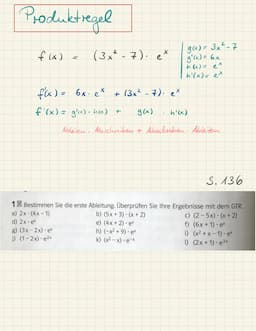 Produktregel
f(x) = (3x² - 7) · eˣ
g(x) = 3x² - 7
g'(x) = 6x
h(x) = eˣ
h'(x) = eˣ
f'(x) = 6x · eˣ + (3x² - 7) · eˣ
f'(x) = g'(x) · h(x) + g(x) · h'(x)
Ableiten · Abschreiben + Abschreiben · Ableiten
S. 136
1 Bestimmen Sie die erste Ableitung. Überprüfen Sie Ihre Ergebnisse mit dem GTR.
a) 2x · (4x - 1) b) (5x + 3) · (x + 2) c) (2 - 5x) · (x + 2)
d) 2x · eˣ e) (4x + 2) · eˣ f) (6x + 1) · eˣ
g) (3x - 2x) · eˣ h) (-x² + 9) · eˣ i) (x² + x - 1) · eˣ
j) (1 - 2x) · e²ˣ k) (x² - x) · e⁻ˣ l) (2x + 1) · e³ˣ